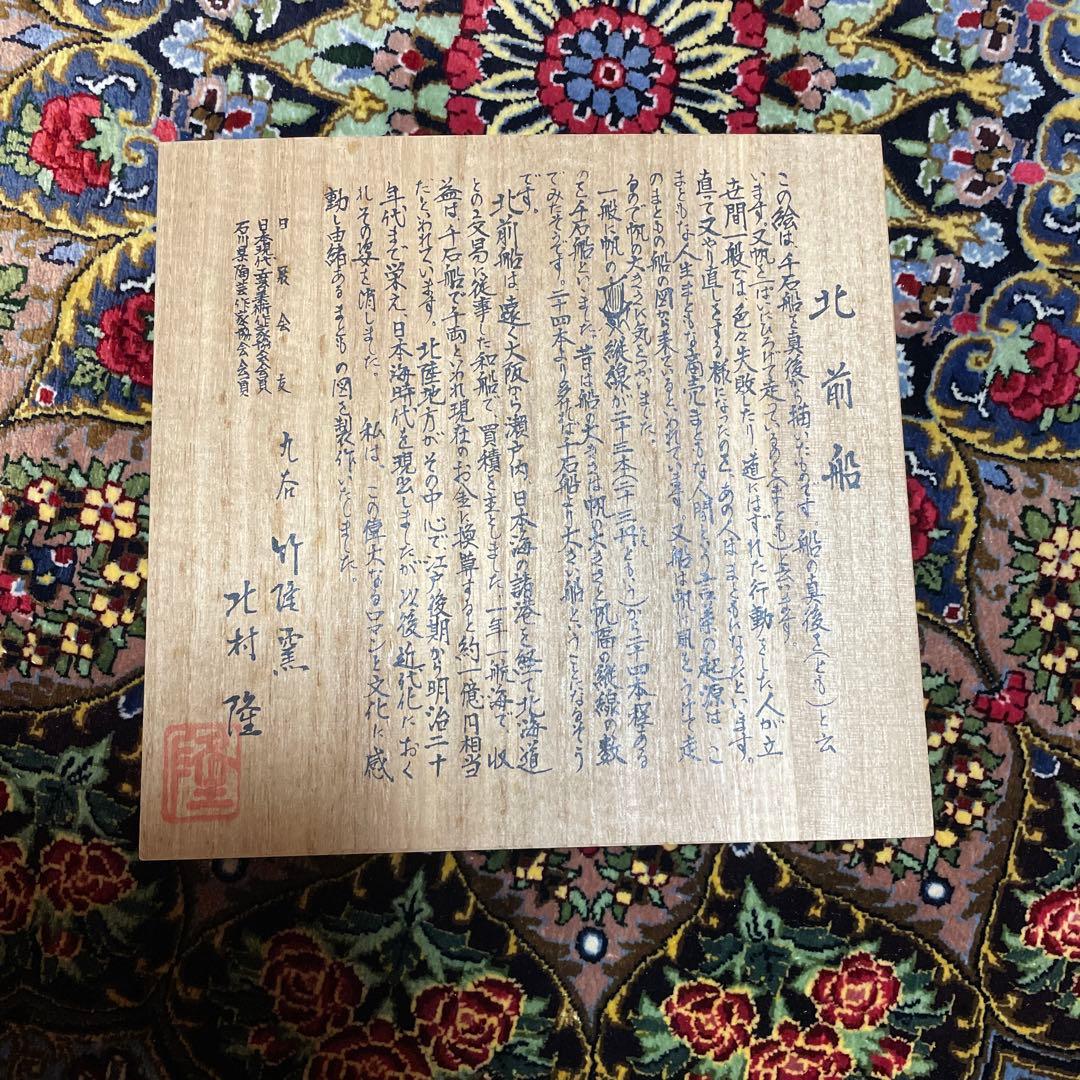 北前船
この絵は千石船を真後から描いたものです。船の真後を(とも)と云
います。又帆を一はいひろげて走っているのを(まとも)と言います。
世間一般では色々失敗したり道にはずれた行動をした人が立
直って又やり直しをする様になったのを、あの人はまともになったといいます。
まともな人生まともな商売まともな人間という言葉の起源は、こ
のまともの船の図から来ているといわれています。又船は帆に風をうけて走
るので帆の大きさに気をつかいました。
一般に帆の縦線が二十三本(二十三反ともいう)から二十四本程ある
のを千石船といいました。昔は船の大きさは帆の大きさと帆布の縦線の数
でみたそうです。二十四本より多ければ千石船より大きい船ということになるそう
です。
北前船は、遠く大阪から瀬戸内、日本海の諸港を経て北海道
との交易に従事した和船で、買積を主としました。一年一航海で、収
益は千石船で千両といわれ現在のお金に換算すると約一億円相当
だといわれています。北陸地方がその中心で江戸後期から明治二十
年代まで栄え日本海時代を現出しましたが、以後近代化におく
れその姿を消しました。私は、この偉大なるロマンと文化に感
動し由緒あるまともの図を製作いたしました。
日展会友
日本現代工芸美術作家協会会員
石川県陶芸作家協会会員
九谷 竹隆窯
北村 隆
隆